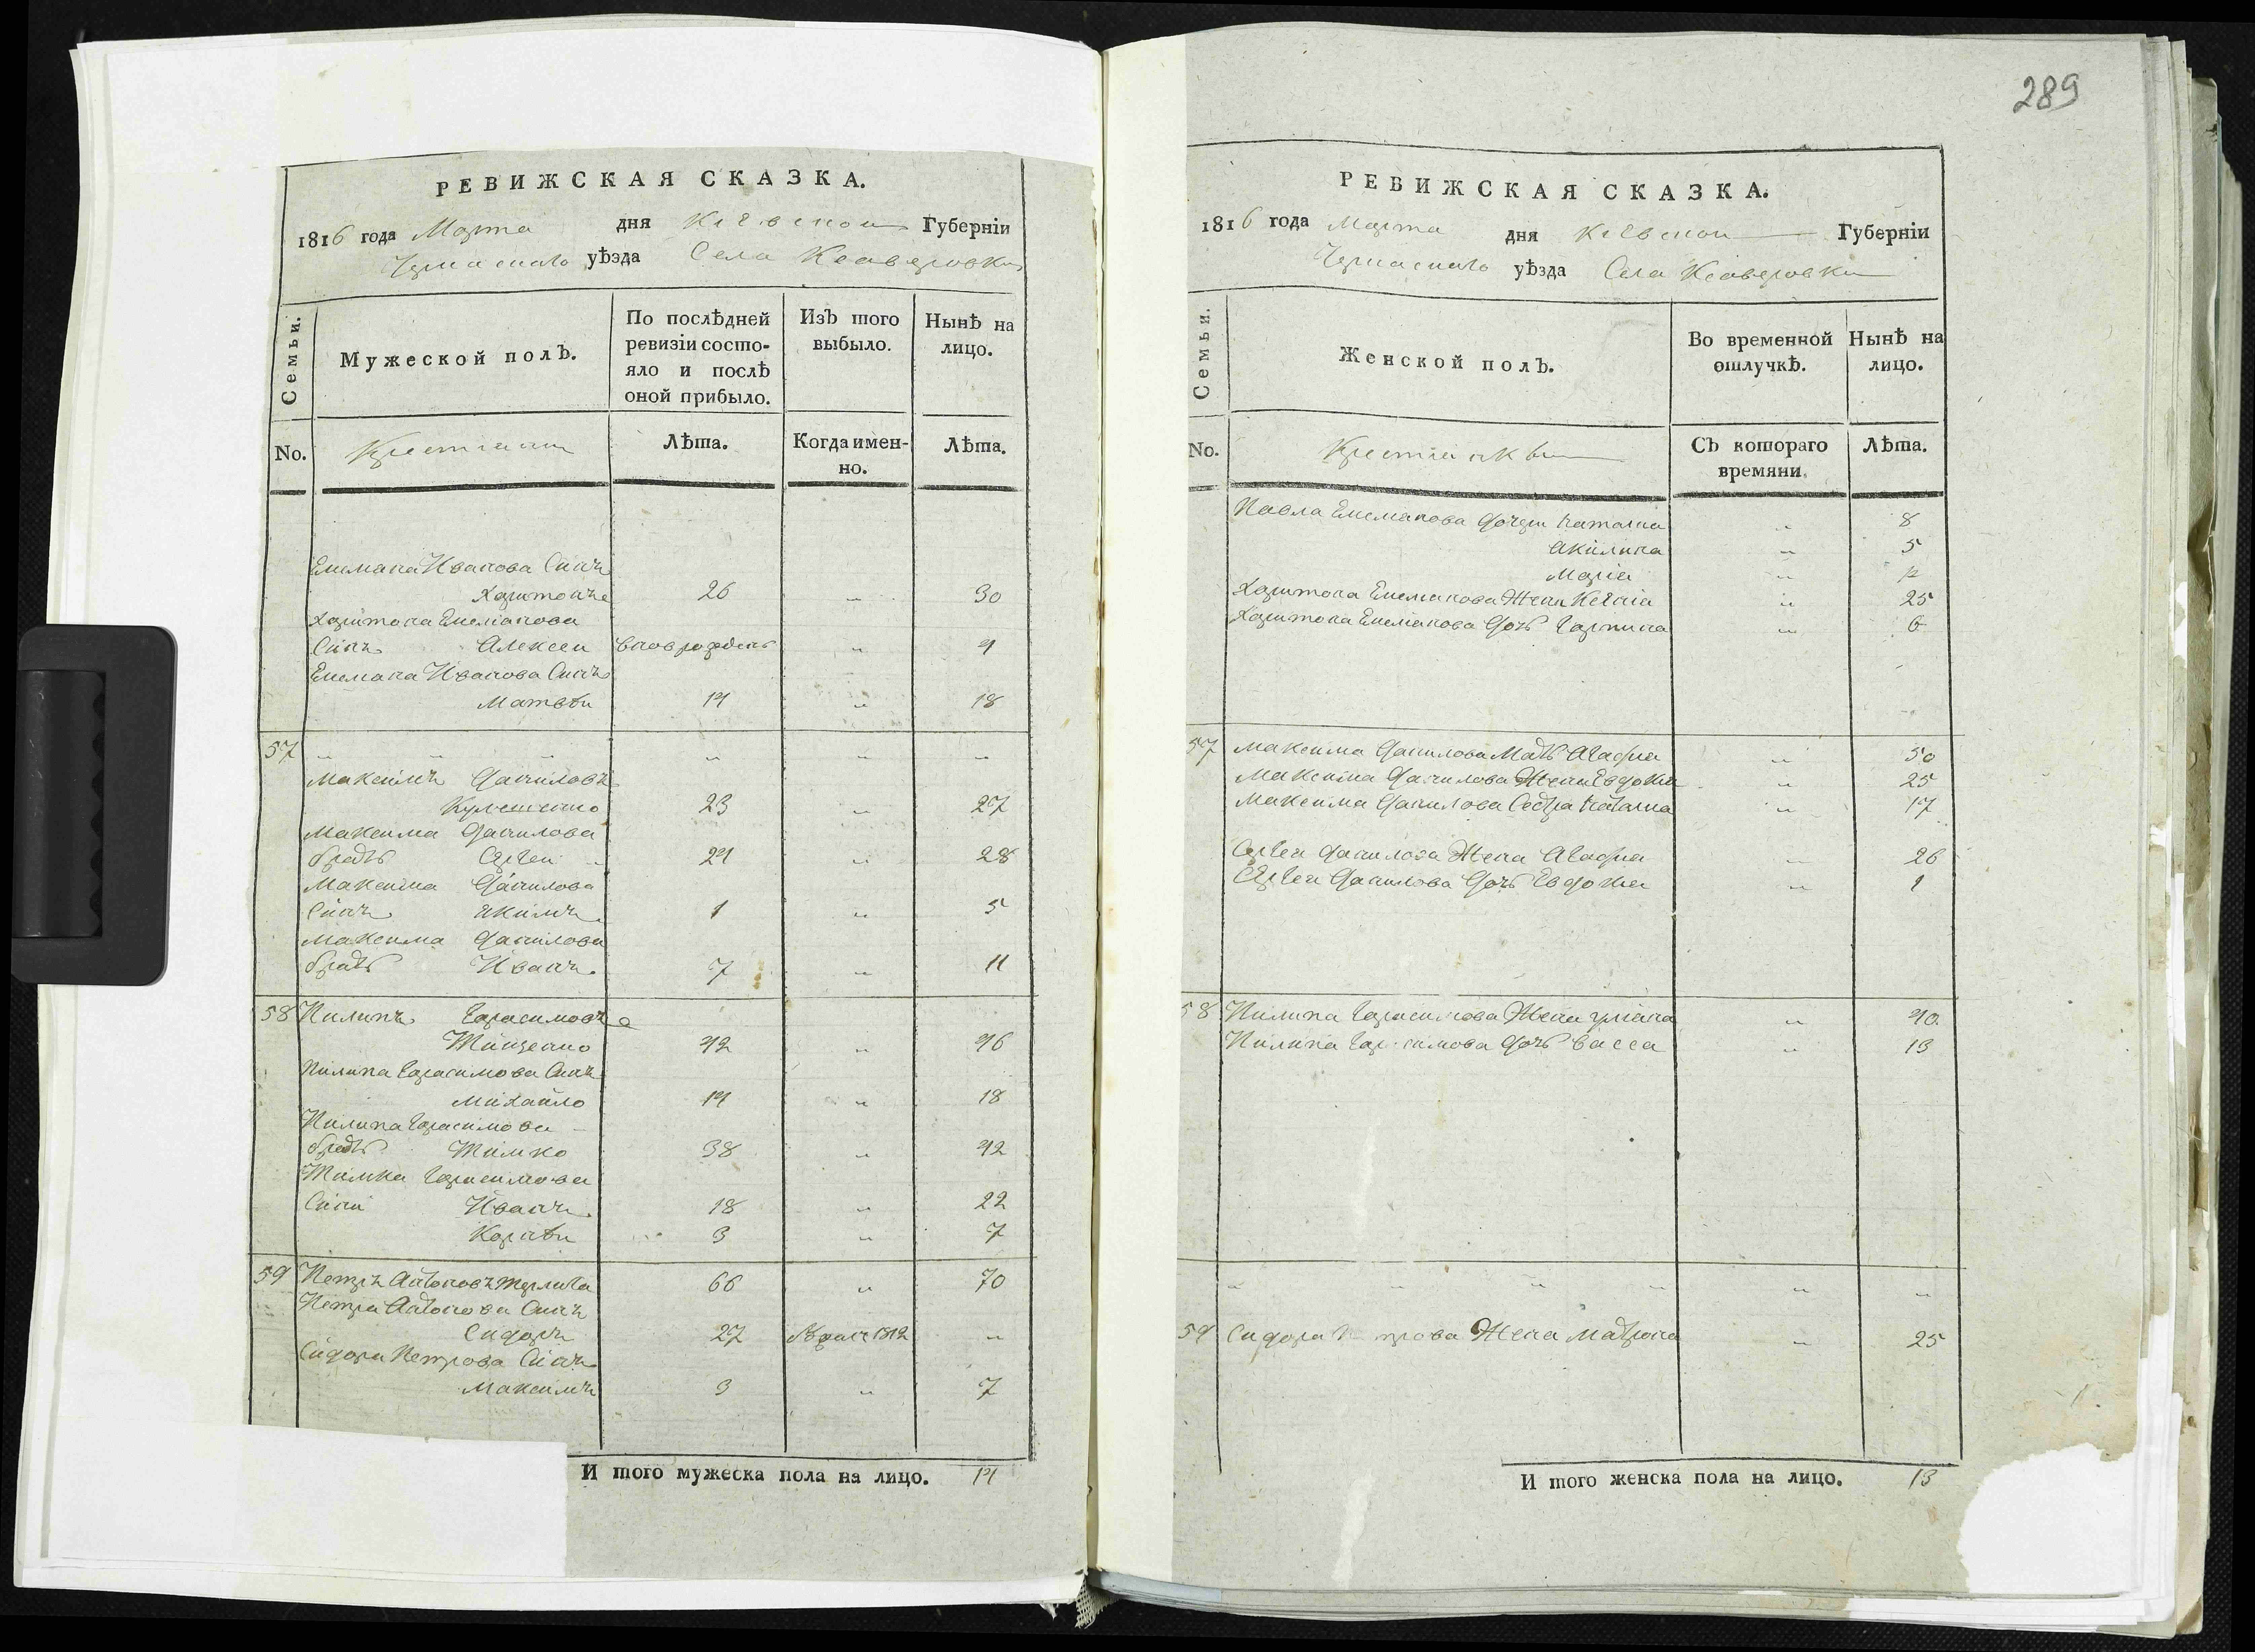 289
РЕВИЖСКАЯ СКАЗКА.
1816 года Марта дня Кіевской Губерніи
Черкаского уѣзда Села Ксаверовки
Семьи. Мужеской полъ. По послѣдней ревизіи состояло и послѣ оной прибыло. Изъ того выбыло. Нынѣ на лицо.
No. Крестіани Лѣта. Когда именно. Лѣта.
Емелиана Иванова Синъ
Харитонъ 26 „ 30
Харитона Емелианова
Синъ Алексей вновърожденъ „ 4
Емелиана Иванова Синъ
Матвѣй 14 „ 18
57 „ „ „ „ „ „
Максимъ Даниловъ
Кулешенко 23 „ 27
Максима Данилова
братъ Сергей 24 „ 28
Максима Данилова
Синъ Якимъ 1 „ 5
Максима Данилова
братъ Иванъ 7 „ 11
58 Пилипъ Герасимовъ
42 „ 46
Пилипа Герасимова Синъ
Михайло 14 „ 18
Пилипа Герасимова
братъ Тимко 38 „ 42
Тимка Герасимова
Сини Иванъ 18 „ 22
Корнѣй 3 „ 7
59 Петръ Антоновъ 66 „ 70
Петра Антонова Синъ
Сидоръ 27 1812 „
Сидора Петрова Синъ
Максимъ 3 „ 7
И того мужеска пола на лицо. 14
РЕВИЖСКАЯ СКАЗКА.
1816 года Марта дня Кіевской Губерніи
Черкаского уѣзда Села Ксаверовки
Семьи. Женской полъ. Во временной отлучкѣ. Нынѣ на лицо.
No. Крестіанкы Съ котораго времяни. Лѣта.
Павла Емелианова дочери Наталия „ 8
Акилина „ 5
Маріа „
Харитона Емелианова Жена Ксеніа „ 25
Харитона Емелианова дочь Гарпина „ 6
57 Максима Данилова Мать Агафиа „ 50
Максима Данилова Жена Евдокиа „ 25
Максима Данилова Сестра Наталиа „ 17
Сергея Данилова Жена Агафиа „ 26
Сергея Данилова дочь Евдокиа „ 1
58 Пилипа Герасимова Жена улиана „ 40
Пилипа Герасимова дочь Васса „ 13
„ „ „ „ „ „
59 Сидора Петрова Жена Матрона „ 25
И того женска пола на лицо. 13